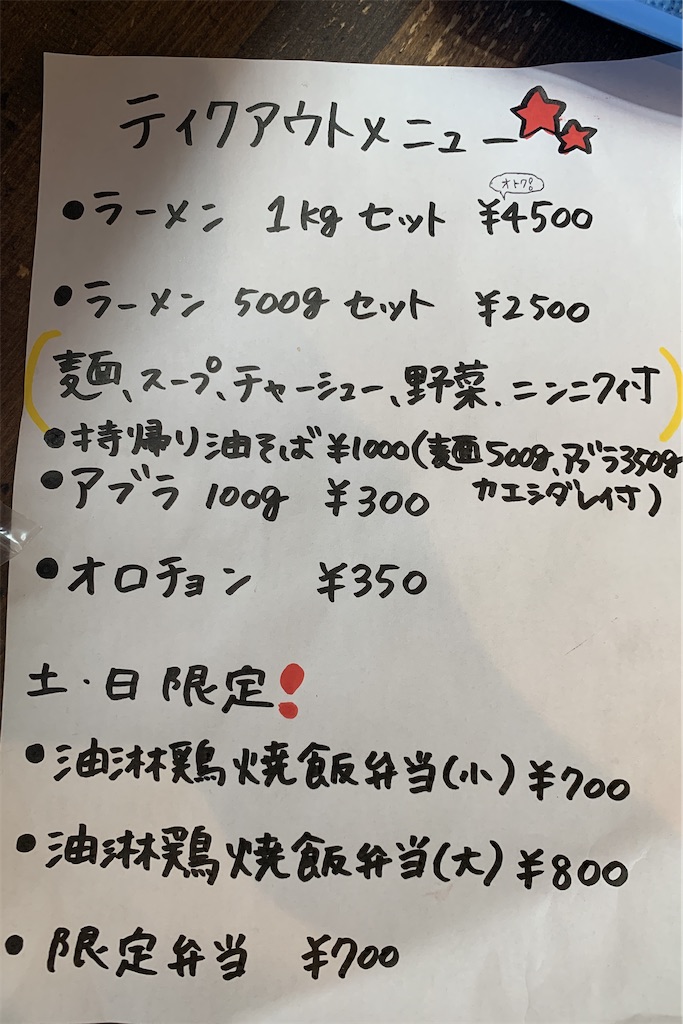 テイクアウトメニュー
オトク!
・ラーメン 1kg セット ¥4500
・ラーメン 500g セット ¥2500
(麺、スープ、チャーシュー、野菜、ニンニク付)
・持帰り油そば ¥1000(麺500g、アブラ350g
カエシダレ付)
・アブラ 100g ¥300
・オロチョン ¥350
土・日限定!
・油淋鶏焼飯弁当(小) ¥700
・油淋鶏焼飯弁当(大) ¥800
・限定弁当 ¥700